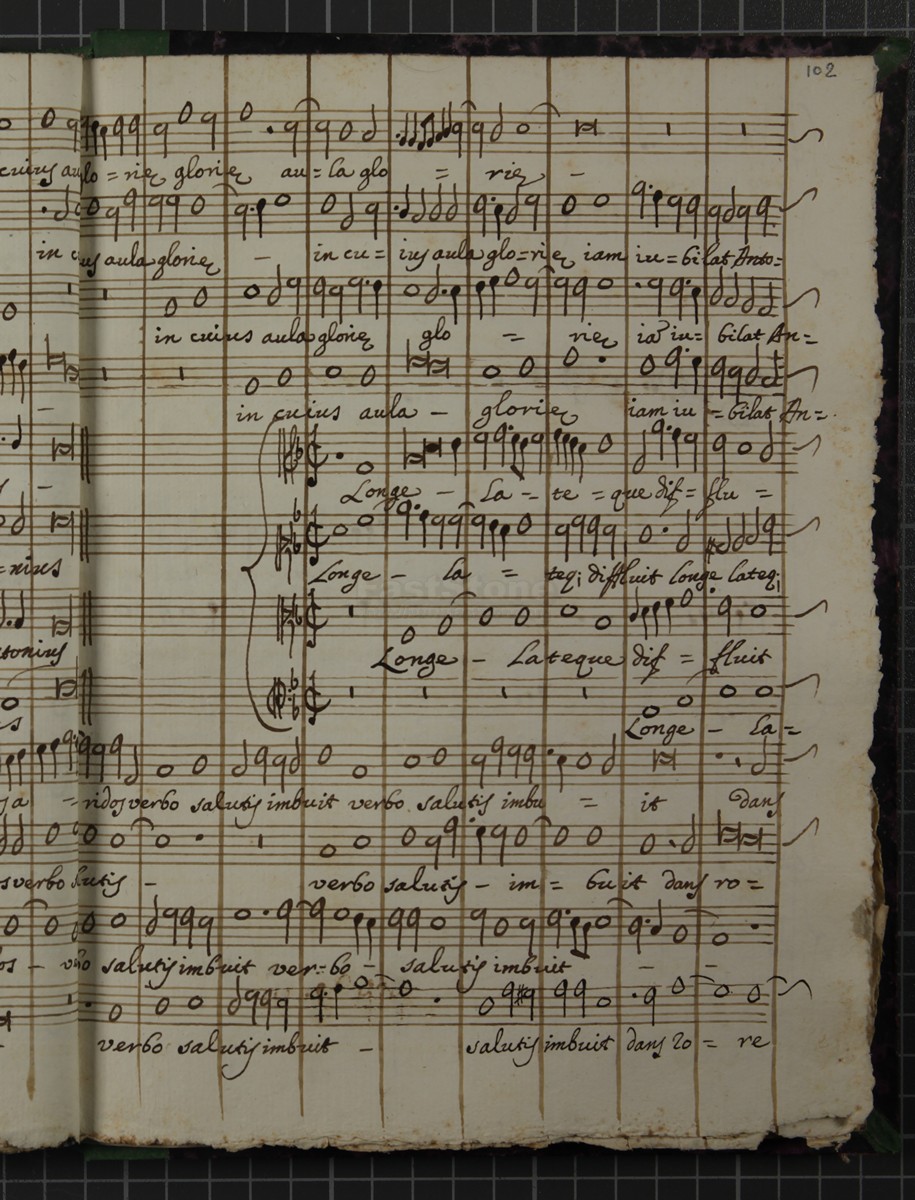 102
lo = rię glorię au = la glo = rię -
in c us aula glorię - in cu = ius aula glo = rię iam iu = bilat Anto =
in cuius aula glorię glo = rię iā iu = bilat An =
in cuius aula - glorię iam iu = bilat An =
Longe - La - te = que dif = flu =
= nius Longe - la = teq; diffluit longe lateq;
tonius Longe - Lateque dif = fluit
Longe - la =
= ridos verbo salutis imbuit verbo salutis imbu = it dans
verbo salutis - verbo salutis - im = buit dans ro =
os - salutis imbuit ver = bo - salutis imbuit - -
verbo salutis imbuit - salutis imbuit dans ro = re